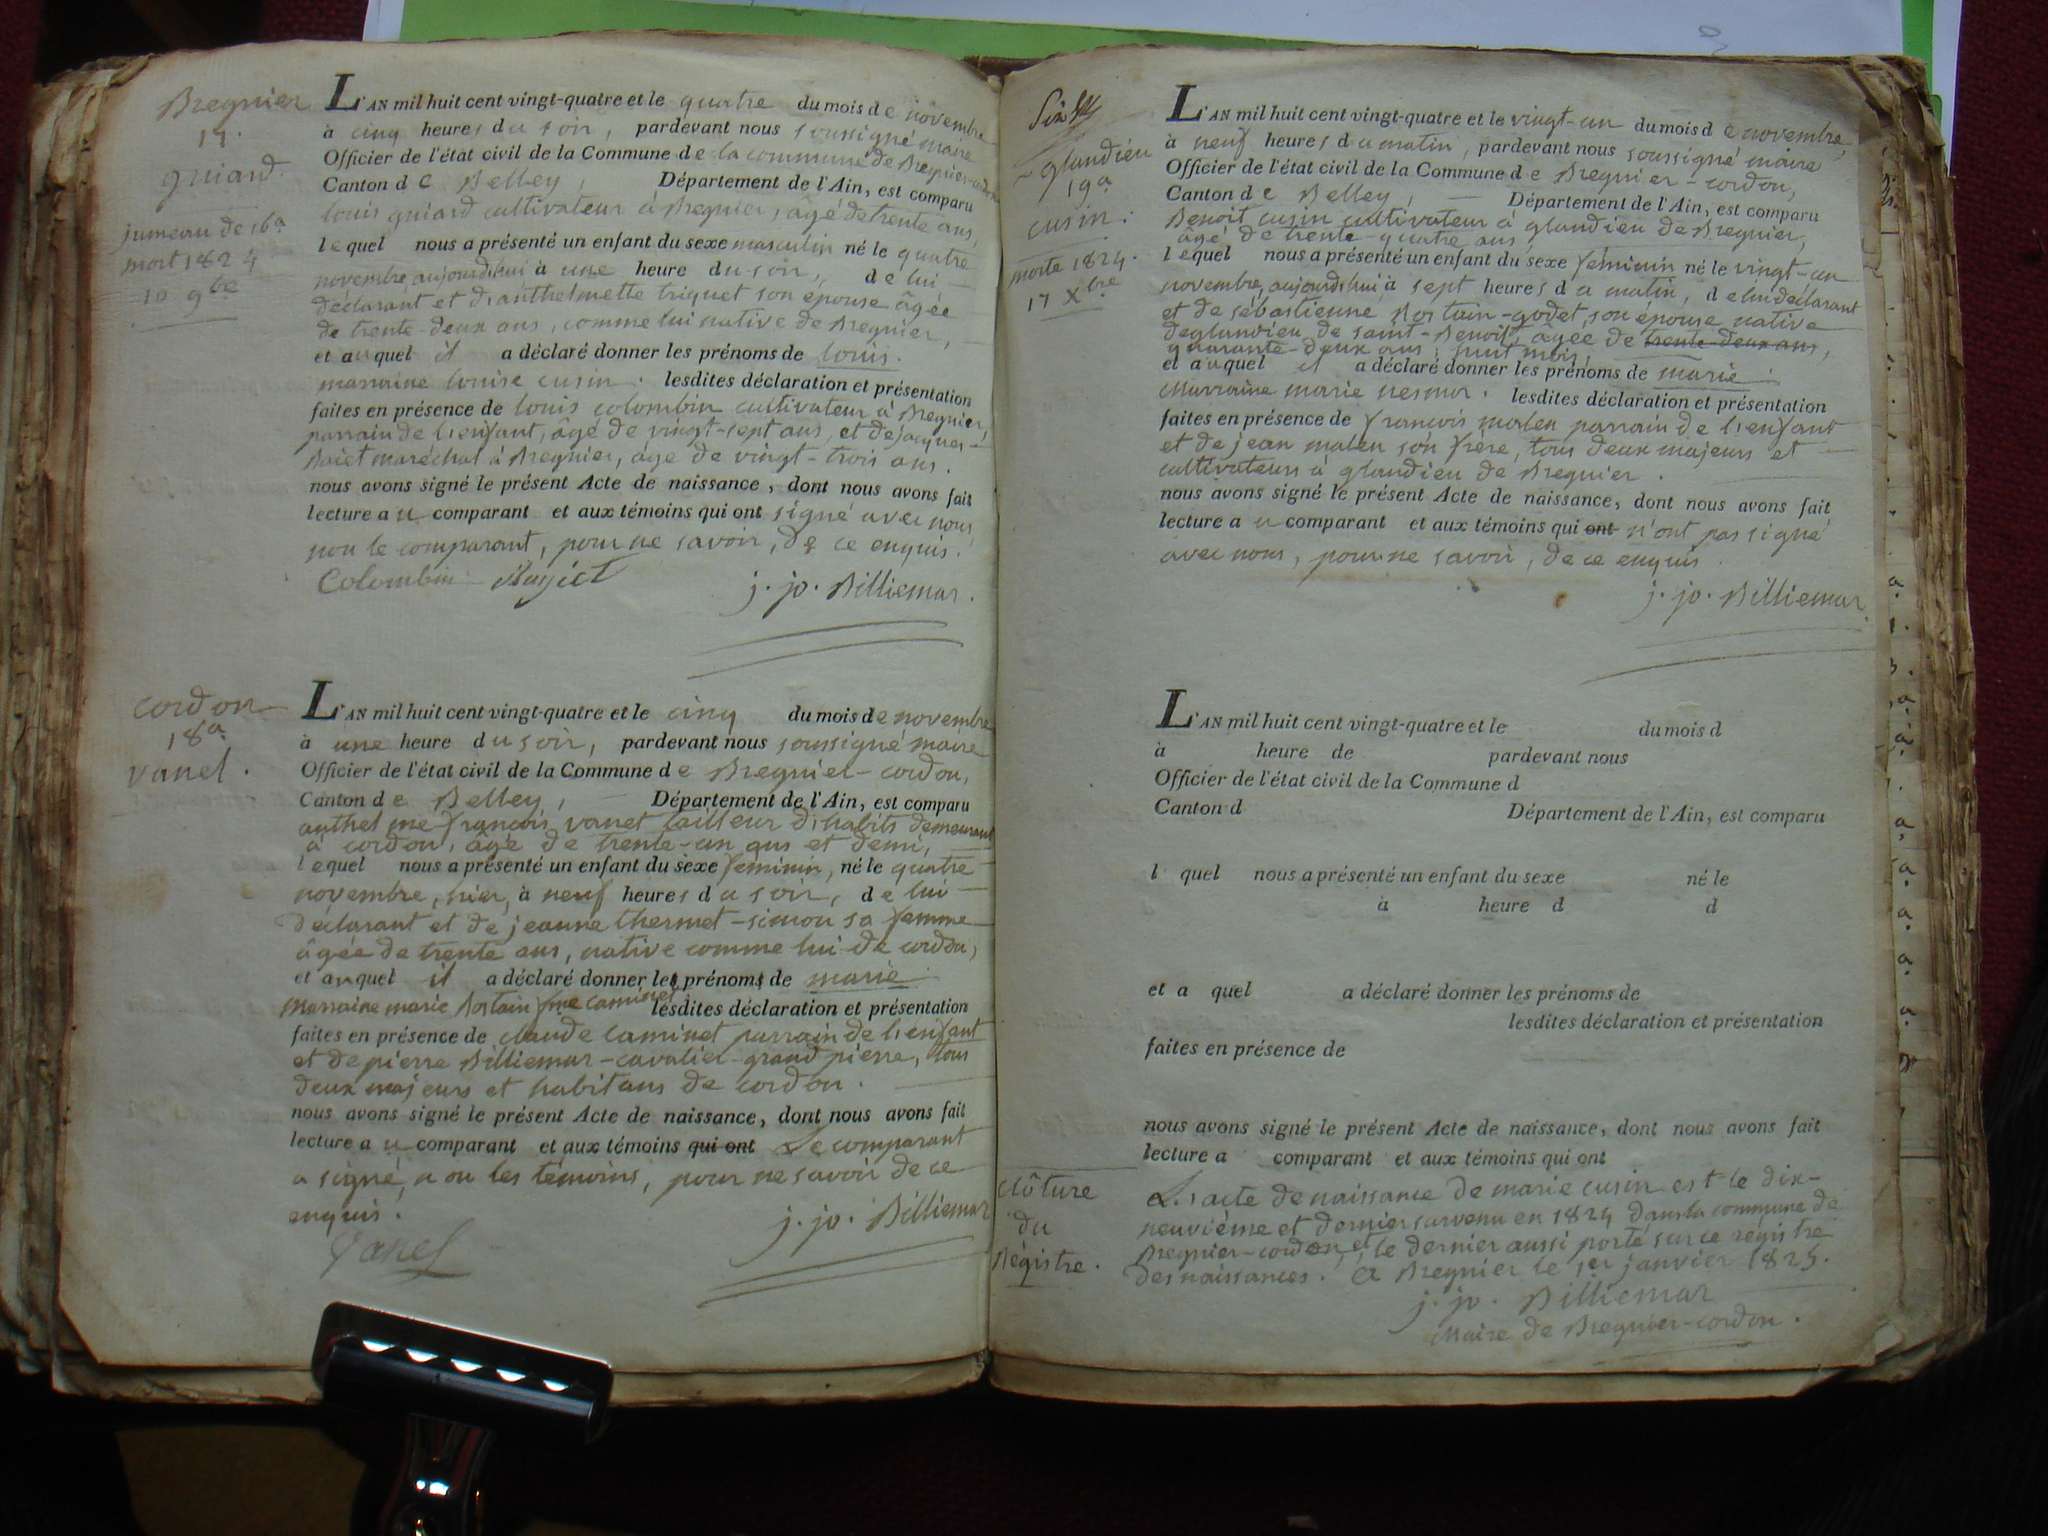 Bregnier
17.
guiard.
jumeau de 16a
mort 1824
10 9bre
L'AN mil huit cent vingt-quatre et le quatre du mois de novembre
à cinq heures du soir, pardevant nous soussigné maire
Officier de l'état civil de la Commune de la commune de Bregnier-cordon
Canton de Belley, Département de l'Ain, est comparu
louis guiard cultivateur à Bregnier, âgé de trente ans,
lequel nous a présenté un enfant du sexe masculin né le quatre
novembre, aujourd'hui à une heure du soir, de lui
déclarant et d'anthelmette triquet son épouse âgée
de trente-deux ans, comme lui native de Bregnier,
et auquel il a déclaré donner les prénoms de louis.
marraine louise cusin. lesdites déclaration et présentation
faites en présence de louis colombin cultivateur à Bregnier,
parrain de l'enfant, âgé de vingt-sept ans, et de jacques
maréchal à Bregnier, âgé de vingt-trois ans.
nous avons signé le présent Acte de naissance, dont nous avons fait
lecture au comparant et aux témoins qui ont signé avec nous,
non le comparant, pour ne savoir, de ce enquis.
Colombin
j. jo. Billiemar.
cordon
18a
vanel.
L'AN mil huit cent vingt-quatre et le cinq du mois de novembre
à une heure du soir, pardevant nous soussigné maire
Officier de l'état civil de la Commune de Bregnier-cordon,
Canton de Belley, Département de l'Ain, est comparu
anthelme françois vanel tailleur d'habits demeurant
à cordon, âgé de trente-un ans et demi,
lequel nous a présenté un enfant du sexe feminin, né le quatre
novembre, hier, à neuf heures du soir, de lui
déclarant et de jeanne thermet-simon sa femme
âgée de trente ans, native comme lui de cordon,
et auquel il a déclaré donner les prénoms de marie.
Marraine marie Bortain fme caminet lesdites déclaration et présentation
faites en présence de claude caminet parrain de l'enfant
et de pierre Billiemar-cavalier-grand pierre, tous
deux majeurs et habitans de cordon.
nous avons signé le présent Acte de naissance, dont nous avons fait
lecture au comparant et aux témoins qui ont Le comparant
a signé, non les témoins, pour ne savoir de ce
enquis.
j. jo. Billiemar
Vanel
glandieu
19a
cusin.
morte 1824.
17 Xbre
L'AN mil huit cent vingt-quatre et le vingt-un du mois de novembre,
à neuf heures du matin, pardevant nous soussigné maire
Officier de l'état civil de la Commune de Bregnier-cordon,
Canton de Belley, Département de l'Ain, est comparu
Benoit cusin cultivateur à glandieu de Bregnier,
âgé de trente-quatre ans
lequel nous a présenté un enfant du sexe feminin né le vingt-un
novembre, aujourd'hui à sept heures du matin, de lui déclarant
et de sébastienne Bortain-godet, son épouse native
de glandieu de saint-Benoit, âgée de trente-deux ans,
quarante-deux ans, huit mois,
et auquel il a déclaré donner les prénoms de marie.
Marraine marie. lesdites déclaration et présentation
faites en présence de françois malen parrain de l'enfant
et de jean malen son frère, tous deux majeurs et
cultivateurs à glandieu de Bregnier.
nous avons signé le présent Acte de naissance, dont nous avons fait
lecture au comparant et aux témoins qui ont n'ont pas signé
avec nous, pour ne savoir, de ce enquis.
j. jo. Billiemar
L'AN mil huit cent vingt-quatre et le du mois d
à heure de pardevant nous
Officier de l'état civil de la Commune d
Canton d Département de l'Ain, est comparu
l quel nous a présenté un enfant du sexe né le
à heure d d
et a quel a déclaré donner les prénoms de
lesdites déclaration et présentation
faites en présence de
nous avons signé le présent Acte de naissance, dont nous avons fait
lecture a comparant et aux témoins qui ont
Clôture
du
Régistre.
L'acte de naissance de marie cusin est le dix-
neuvième et dernier survenu en 1824 dans la commune de
Bregnier-cordon, et le dernier aussi porté sur ce registre
des naissances. à Bregnier le 1er janvier 1825.
j. jo. Billiemar
Maire de Bregnier-cordon.